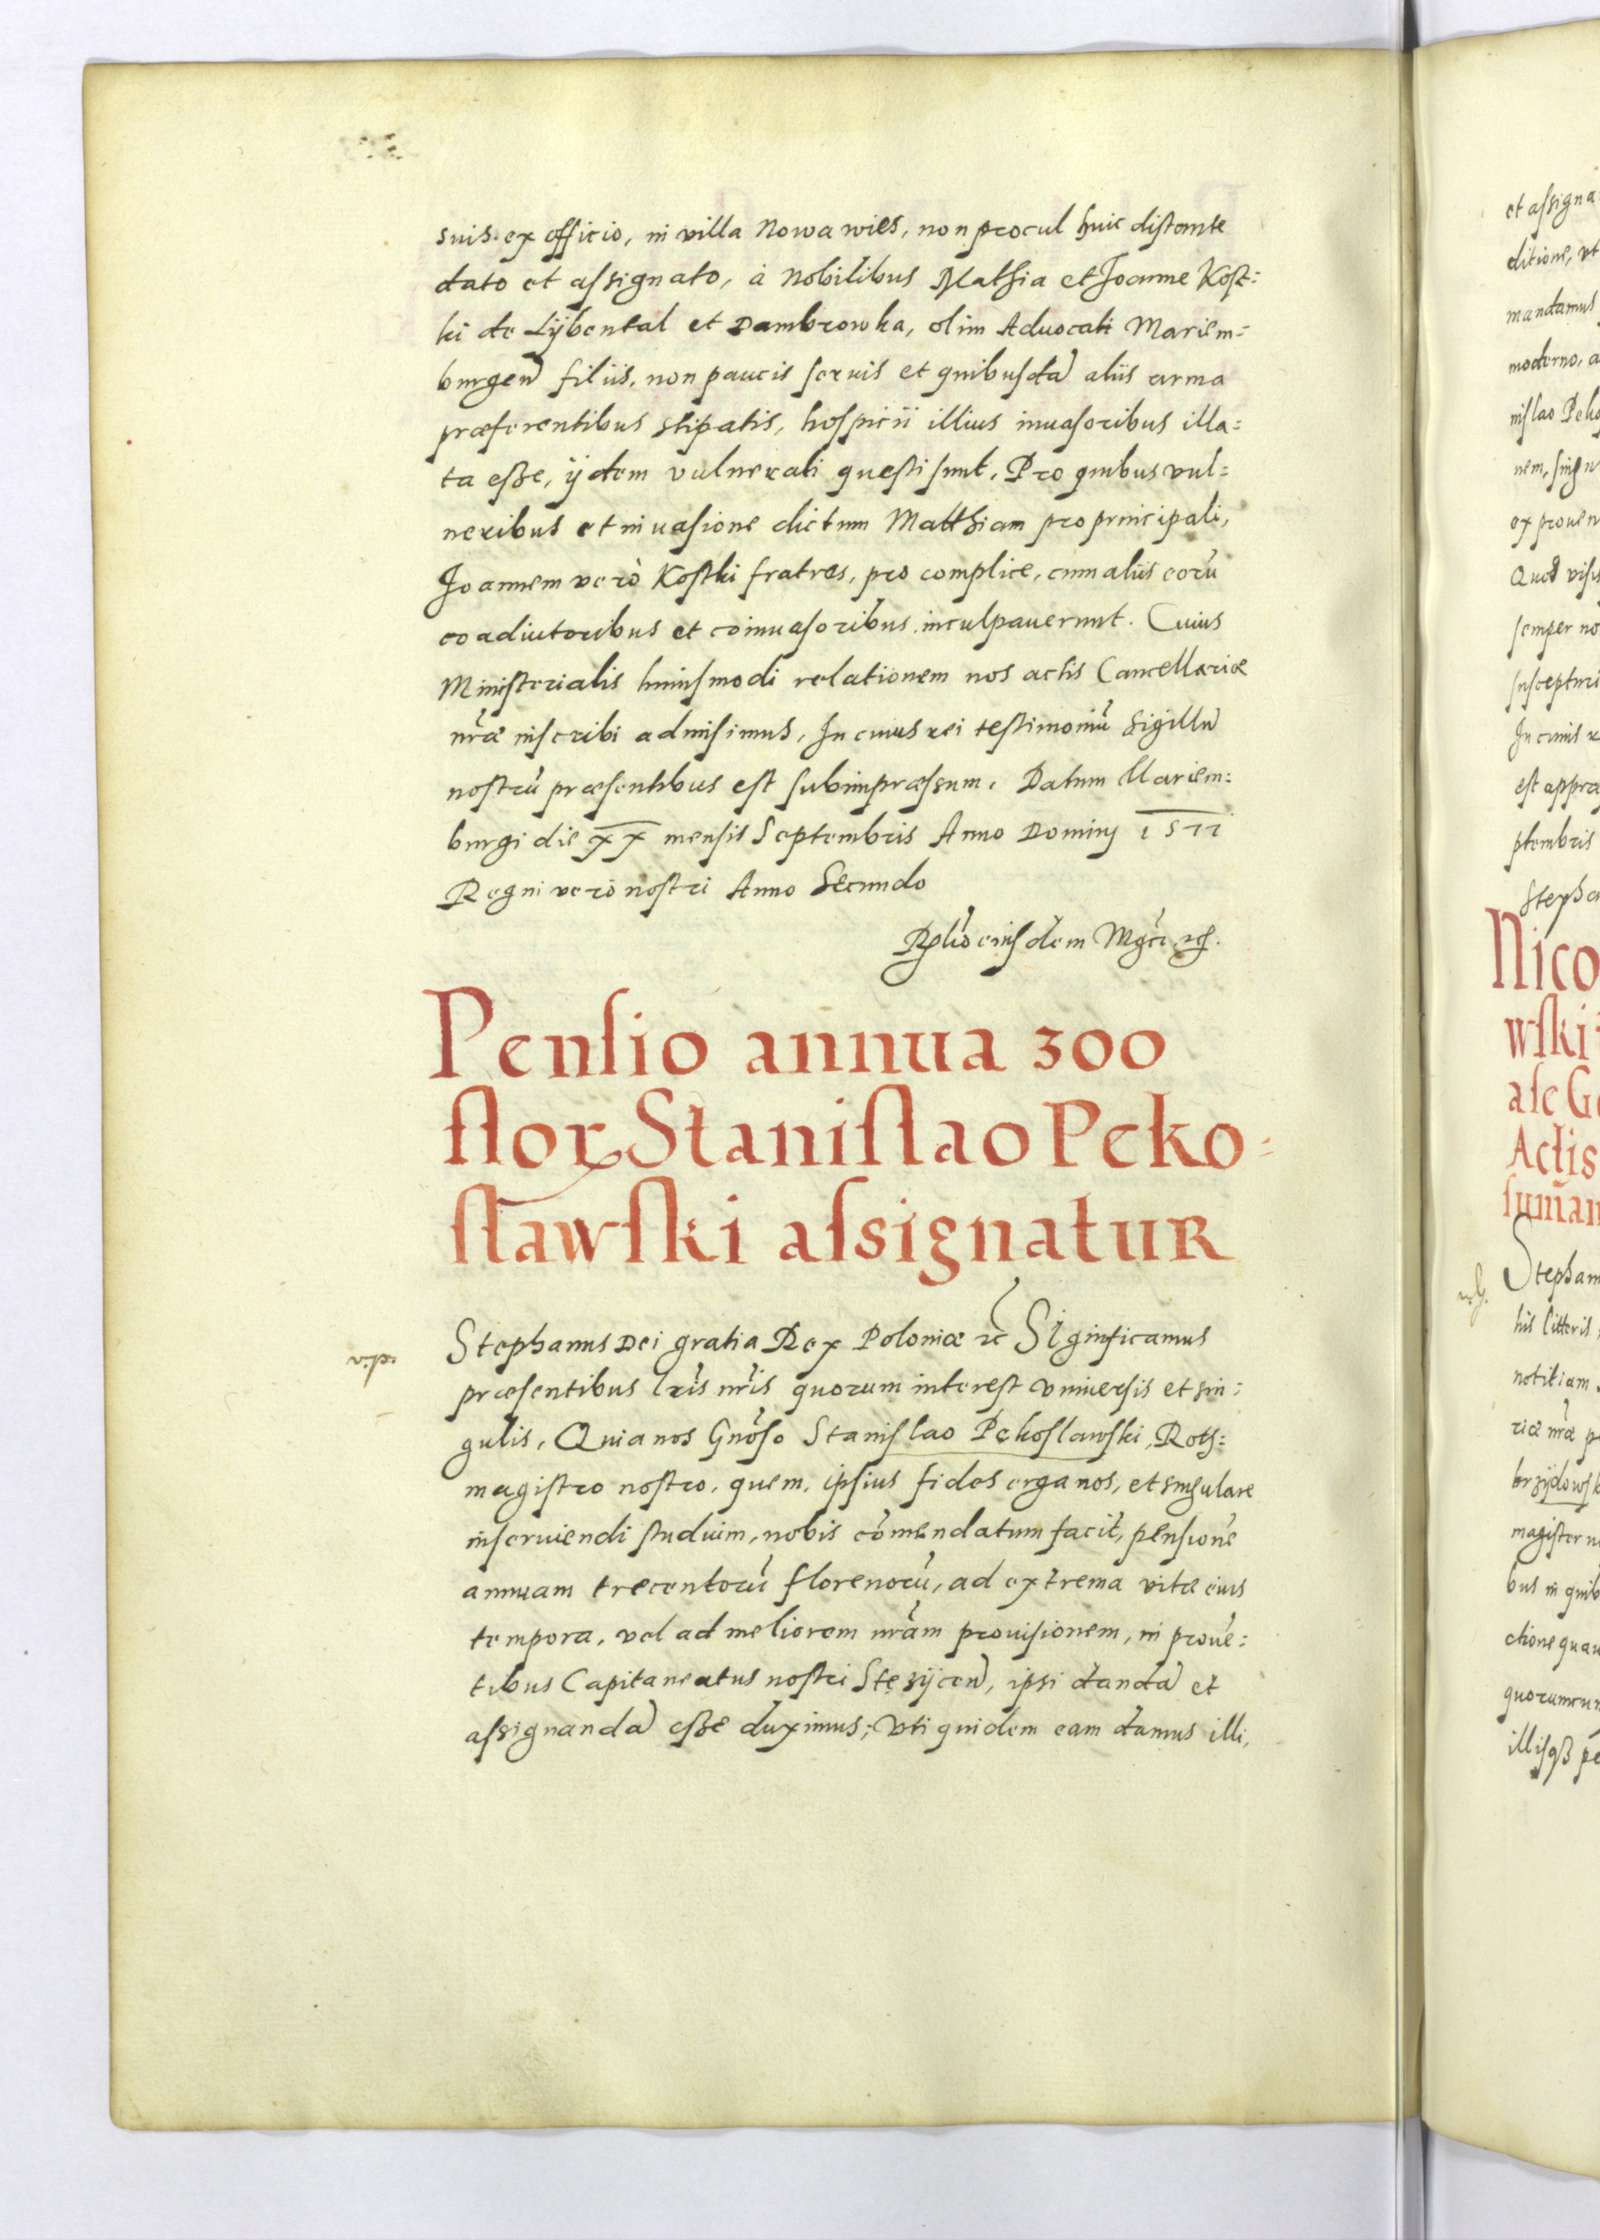 suis ex officio, in villa Nowa wies, non procul huic distante
dato et assignato, à Nobilibus Mathia et Joanne Kost:
ki de Lÿbental et Dambrowka, olim Aduocati Mariem:
burgeñ filiis, non paucis seruis et quibusdã aliis arma
præferentibus stipatis, hospicii illius inuasoribus illa:
ta esse, ÿdem vulnerati questi sunt. Pro quibus vul:
neribus et inuasione dictum Matthiam pro principali,
Joannem verò Kostki fratres, pro complice, cum aliis eorũ
coadiutoribus et coinuasoribus inculpauerunt. Cuius
Ministerialis huiusmodi relationem nos actis Cancellariæ
nr̃æ inscribi admisimus, In cuius rei testimoniũ Sigillũ
nostrũ præsentibus est subimpræssum. Datum Mariem:
burgi die XX mensis Septembris Anno Dominj 1577
Regni verò nostri Anno Secundo
Rel̃o eiusdem Mgci
Pensio annua 300
flor Stanislao Peko:
slawski assignatur
Stephanus Dei gratia Rex Poloniæ ꝛc̃ Significamus
præsentibus lr̃is nr̃is quorum interest vniuersis et sin:
gulis, Quia nos Gnõso Stanislao Pękoslawski, Roth:
magistro nostro, quem, ipsius fides erga nos, et singulare
inseruiendi studium, nobis cõmendatum facit, pensionẽ
annuam trecentorũ florenorũ, ad extrema vitæ eius
tempora, vel ad meliorem nr̃am prouisionem, in prouẽ:
tibus Capitaneatus nostri Stęzÿceñ, ipsi dandã et
assignandã esse duximus; Vti quidem eam damus illi,
et assigna
ditione, vt
mandamus
moderno, a
nislao Peko
nem, sing
ex prouen
Quod visis
semper no
suscepturi
In cuius r
est appræ
ptembris
Stepha
Nico
wski
ase G
Actis
sum̃an
Stephan
his litteris
notitiam
riæ nr̃æ p
brzÿdowsk
magister n
bus in quib
ctione quam
quorumcun
illisq3 pe